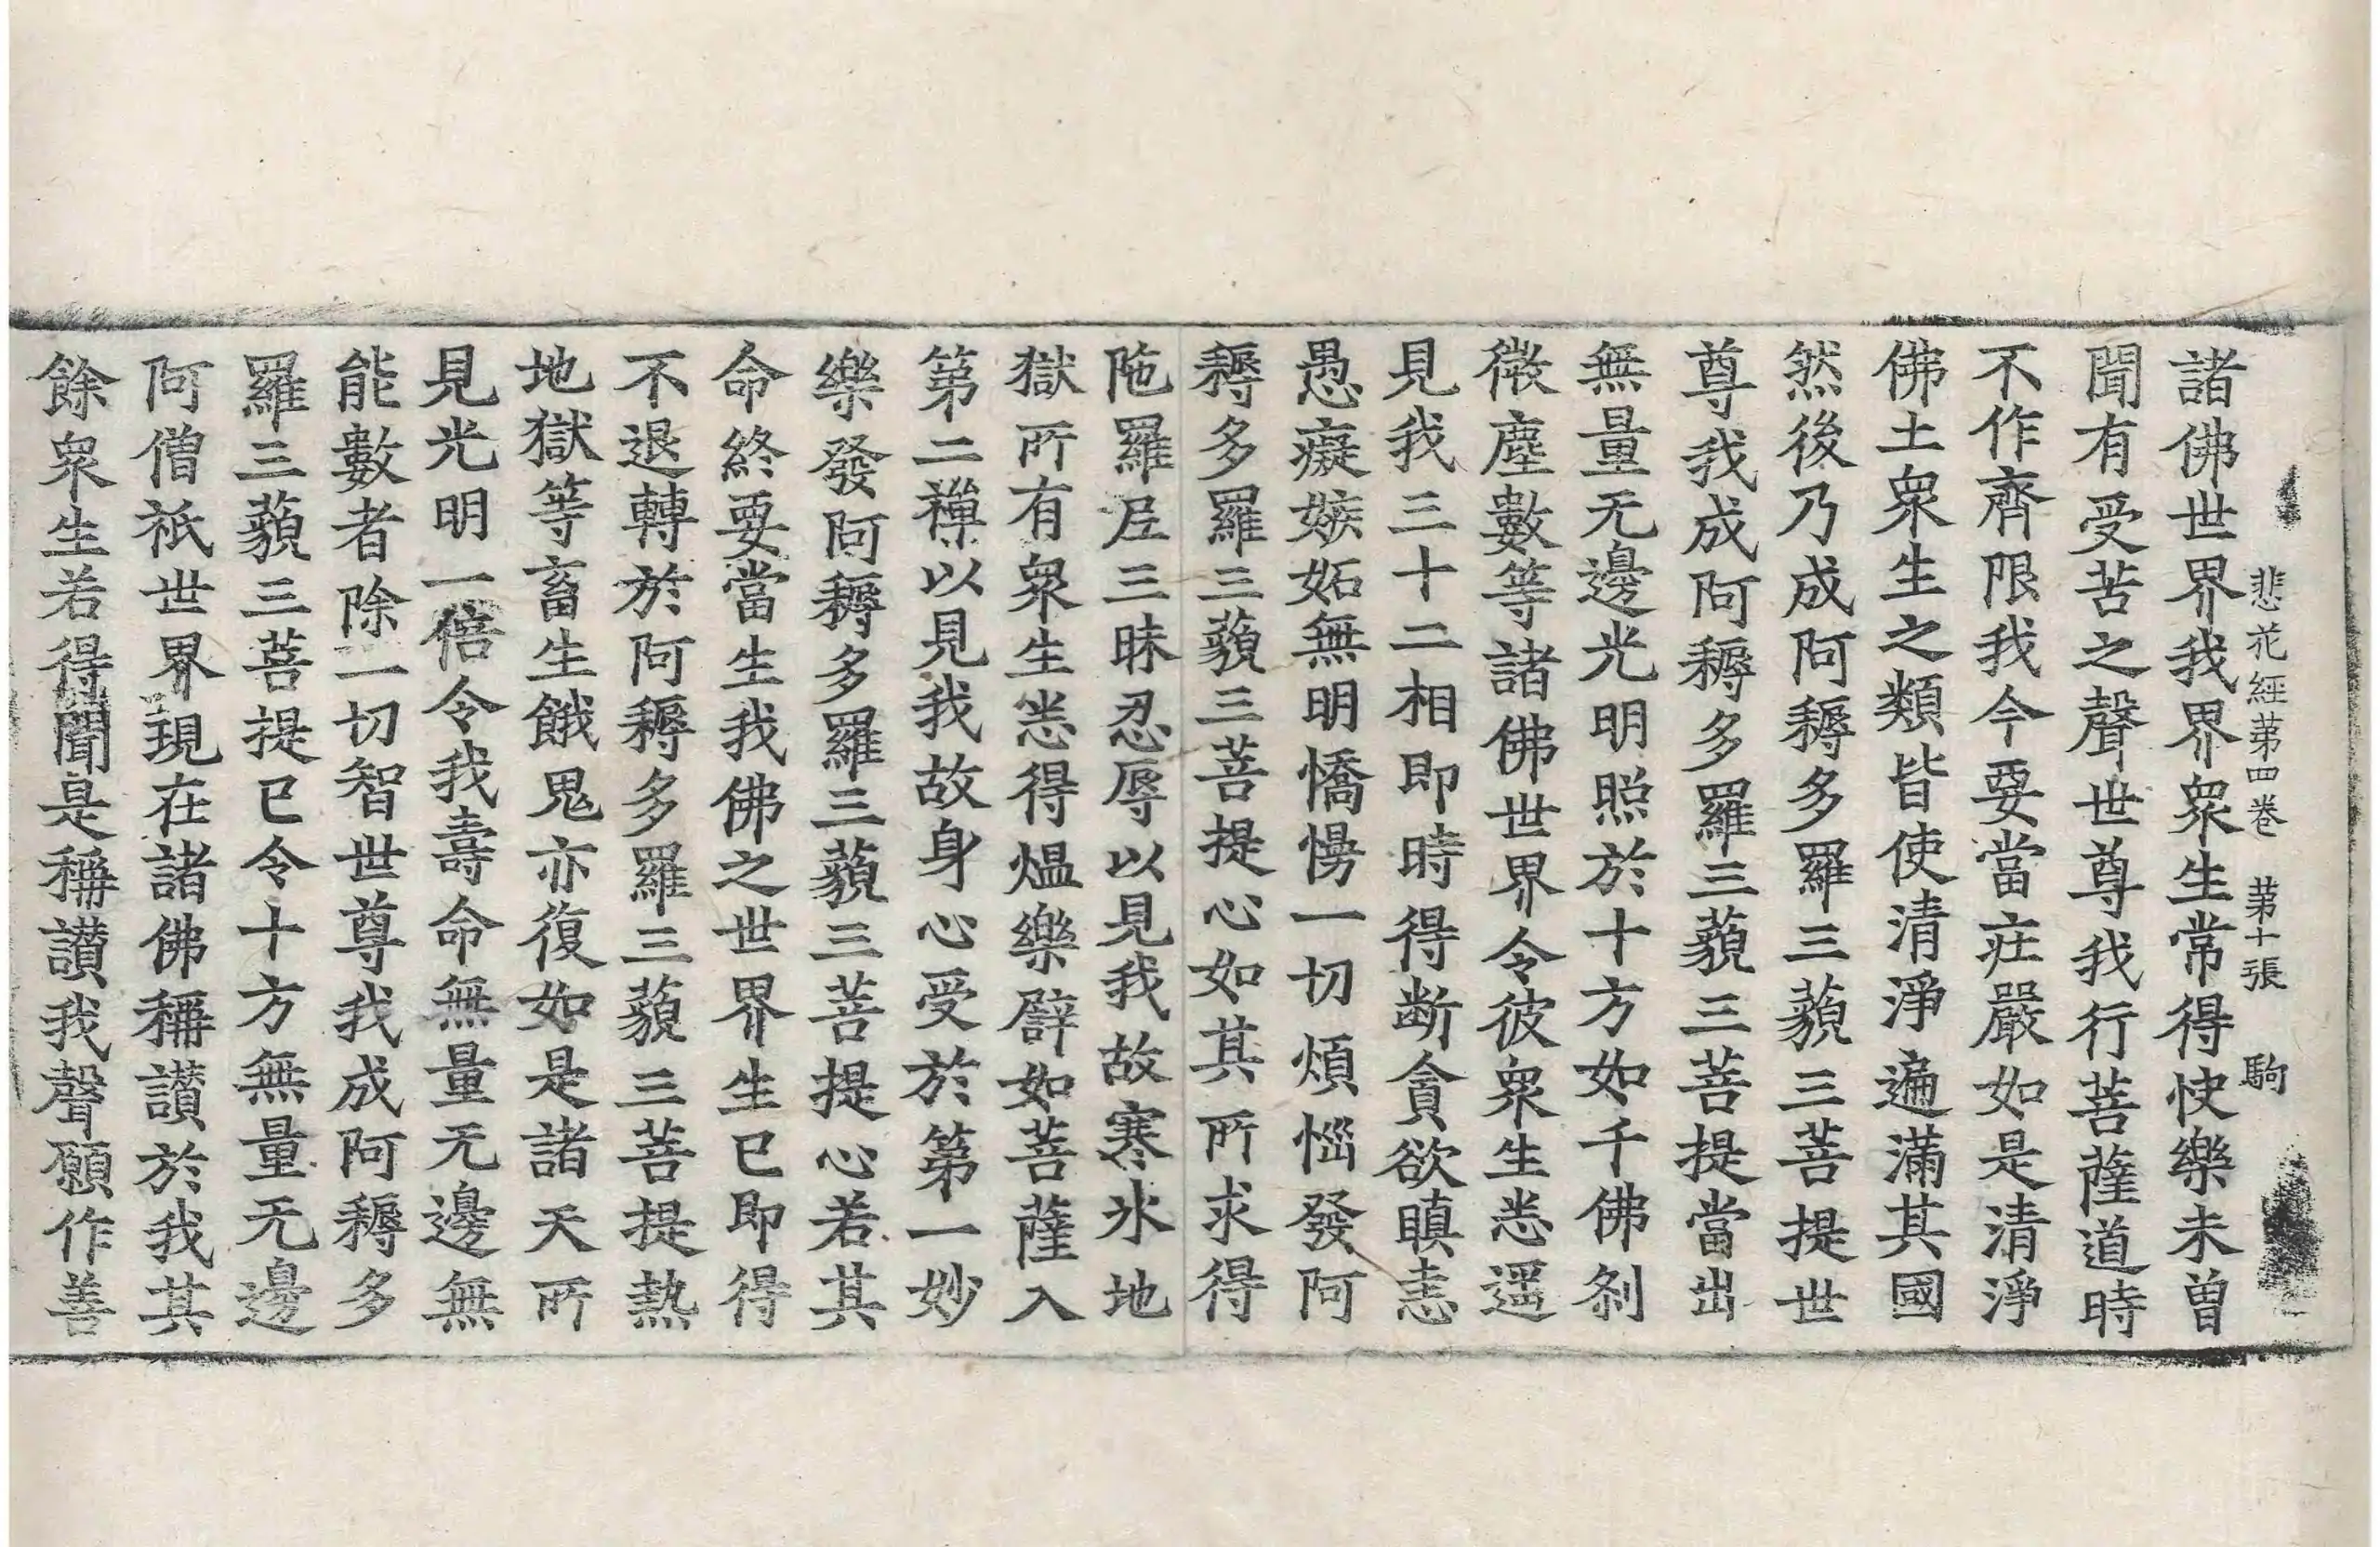 悲花經第四卷 第十張 駒
諸佛世界我界衆生常得快樂未曽
聞有受苦之聲世尊我行菩薩道時
不作齊限我今要當庄嚴如是清淨
佛土衆生之類皆使清淨遍滿其國
然後乃成阿耨多羅三藐三菩提世
尊我成阿耨多羅三藐三菩提當出
無量无邊光明照於十方如千佛刹
微塵數等諸佛世界令彼衆生悉遥
見我三十二相即時得断貪欲瞋恚
愚癡嫉妬無明憍慢一切煩惱發阿
耨多羅三藐三菩提心如其所求得
陁羅尼三昧忍辱以見我故寒氷地
獄所有衆生悉得煴樂辟如菩薩入
第二禪以見我故身心受於第一妙
樂發阿耨多羅三藐三菩提心若其
命終要當生我佛之世界生已即得
不退轉於阿耨多羅三藐三菩提熱
地獄等畜生餓鬼亦復如是諸天所
見光明一倍令我壽命無量无邊無
能數者除一切智世尊我成阿耨多
羅三藐三菩提已令十方無量无邊
阿僧祇世界現在諸佛稱讃於我其
餘衆生若得聞是稱讃我聲願作善